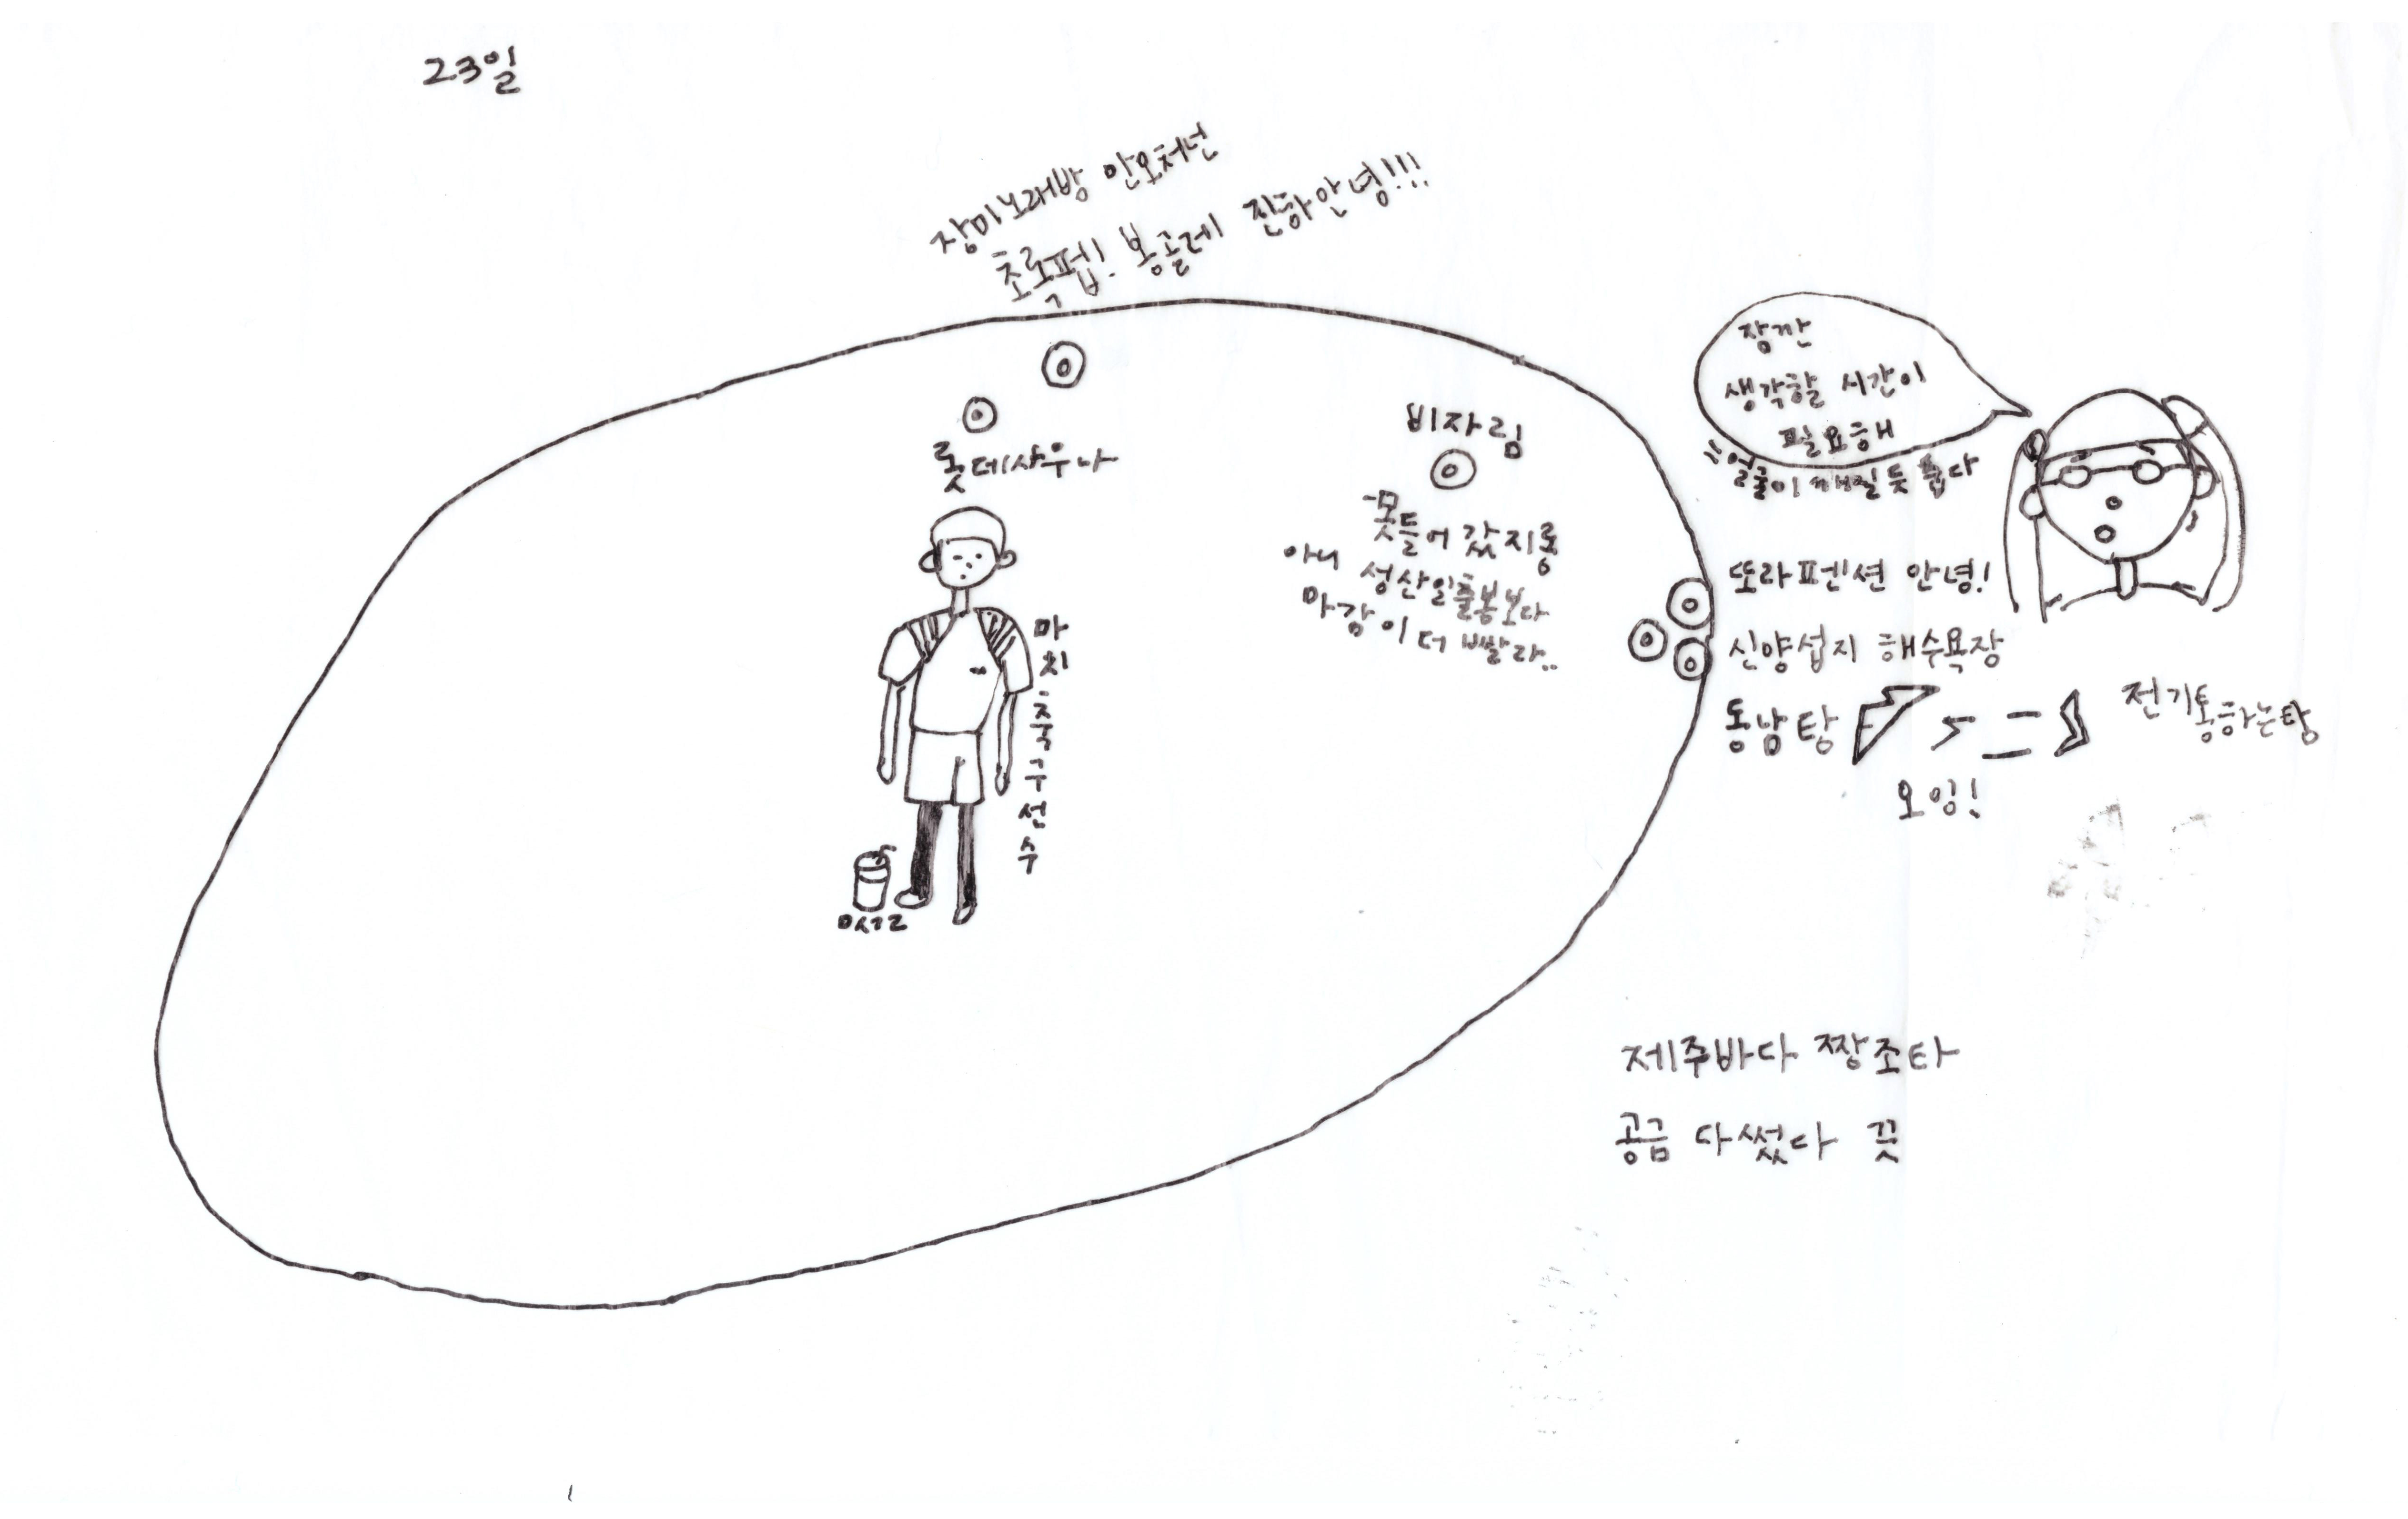 23일
장미노래방 안오처넌
초록펩! 봉골레 진하안녕!!!
롯데샤우나
마치축구선수
비자림
못들어 갔지롱
아니 성산일출봉보다
마감이 더 빨라..
장깐
생각할 시간이
필요해
얼굴이 깨질듯 춥다
또라펜션 안녕!
신양섭지 해수욕장
동남탕
전기통하는탕
오잉!
제주바다 짱조타
공금 다썼다 끗